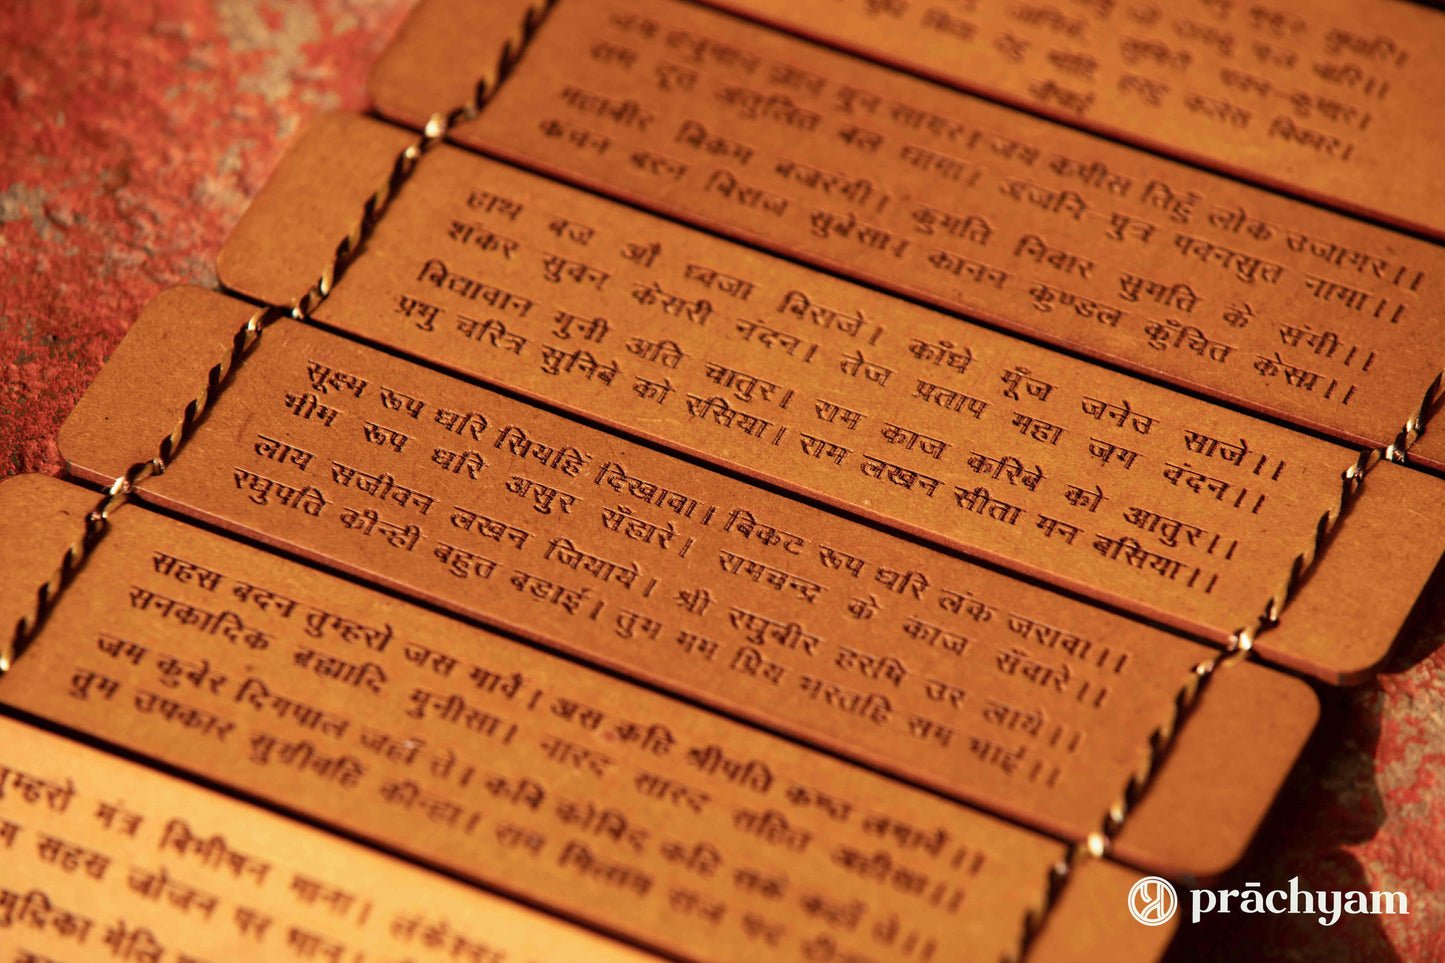 पवन-कुमार।
हरहु कलेस बिकार।
चौपाई
जय हनुमान ज्ञान गुन सागर। जय कपीस तिहुँ लोक उजागर।।
राम दूत अतुलित बल धामा। अंजनि पुत्र पवनसुत नामा।।
महाबीर बिक्रम बजरंगी। कुमति निवार सुमति के संगी।।
कंचन बरन बिराज सुबेसा। कानन कुण्डल कुँचित केसा।।
हाथ बज्र औ ध्वजा बिराजे। काँधे मूँज जनेउ साजे।।
शंकर सुवन केसरी नंदन। तेज प्रताप महा जग वंदन।।
बिद्यावान गुनी अति चातुर। राम काज करिबे को आतुर।।
प्रभु चरित्र सुनिबे को रसिया। राम लखन सीता मन बसिया।।
सूक्ष्म रूप धरि सियहिं दिखावा। बिकट रूप धरि लंक जरावा।।
भीम रूप धरि असुर सँहारे। रामचन्द्र के काज सँवारे।।
लाय सजीवन लखन जियाये। श्री रघुबीर हरषि उर लाये।।
रघुपति कीन्ही बहुत बड़ाई। तुम मम प्रिय भरतहि सम भाई।।
सहस बदन तुम्हरो जस गावैं। अस कहि श्रीपति कण्ठ लगावैं।।
सनकादिक ब्रह्मादि मुनीसा। नारद सारद सहित अहीसा।।
जम कुबेर दिगपाल जहाँ ते। कबि कोबिद कहि सके कहाँ ते।।
तुम उपकार सुग्रीवहि कीन्हा। राम मिलाय राज पद
तुम्हरो मंत्र बिभीषन माना। लंकेस्वर
सहस जोजन पर भानू।
मुद्रिका मेलि
prāchyam